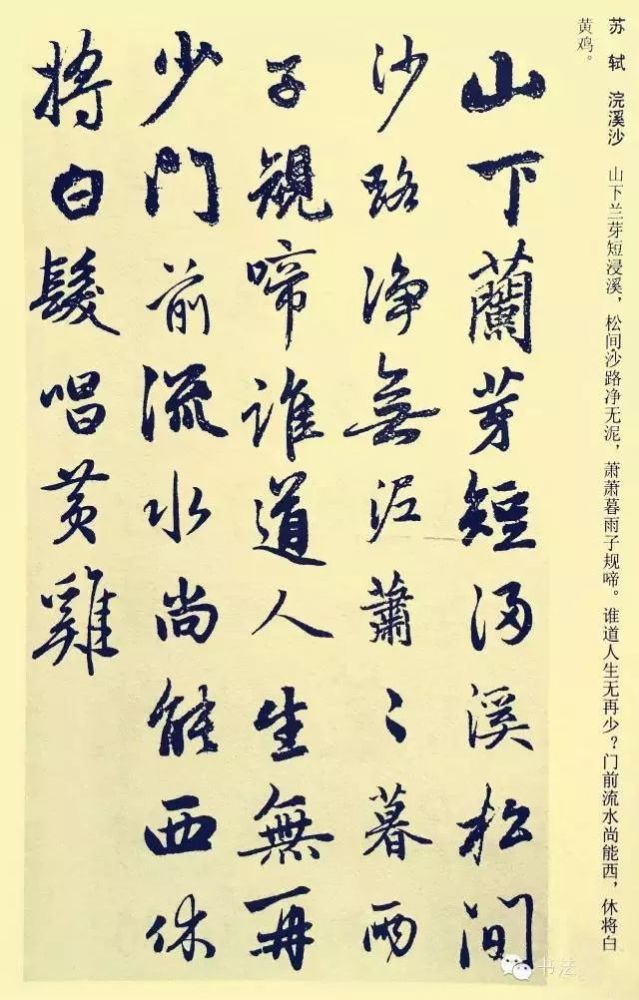 苏 轼 浣溪沙 山下兰芽短浸溪，松间沙路净无泥，萧萧暮雨子规啼。谁道人生无再少？门前流水尚能西，休将白
黄鸡。
山下蘭芽短浸溪松間
沙路净無泥蕭〻暮雨
子規啼谁道人生無再
少門前流水尚能西休
將白髮唱黄雞
书法